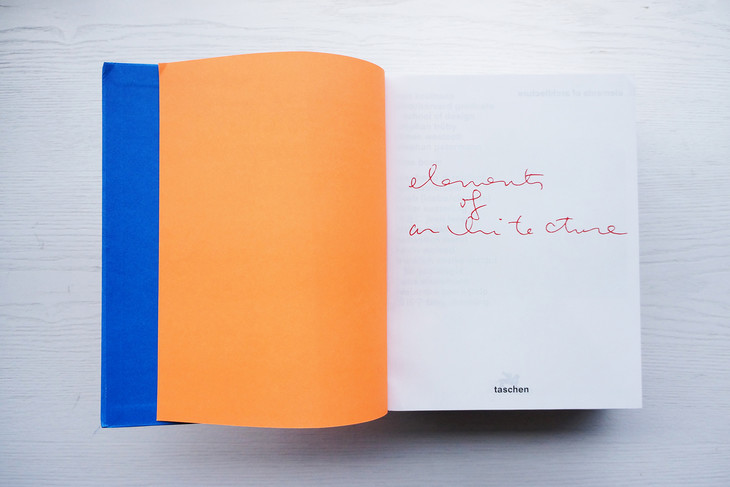 elements
of
architecture
taschen